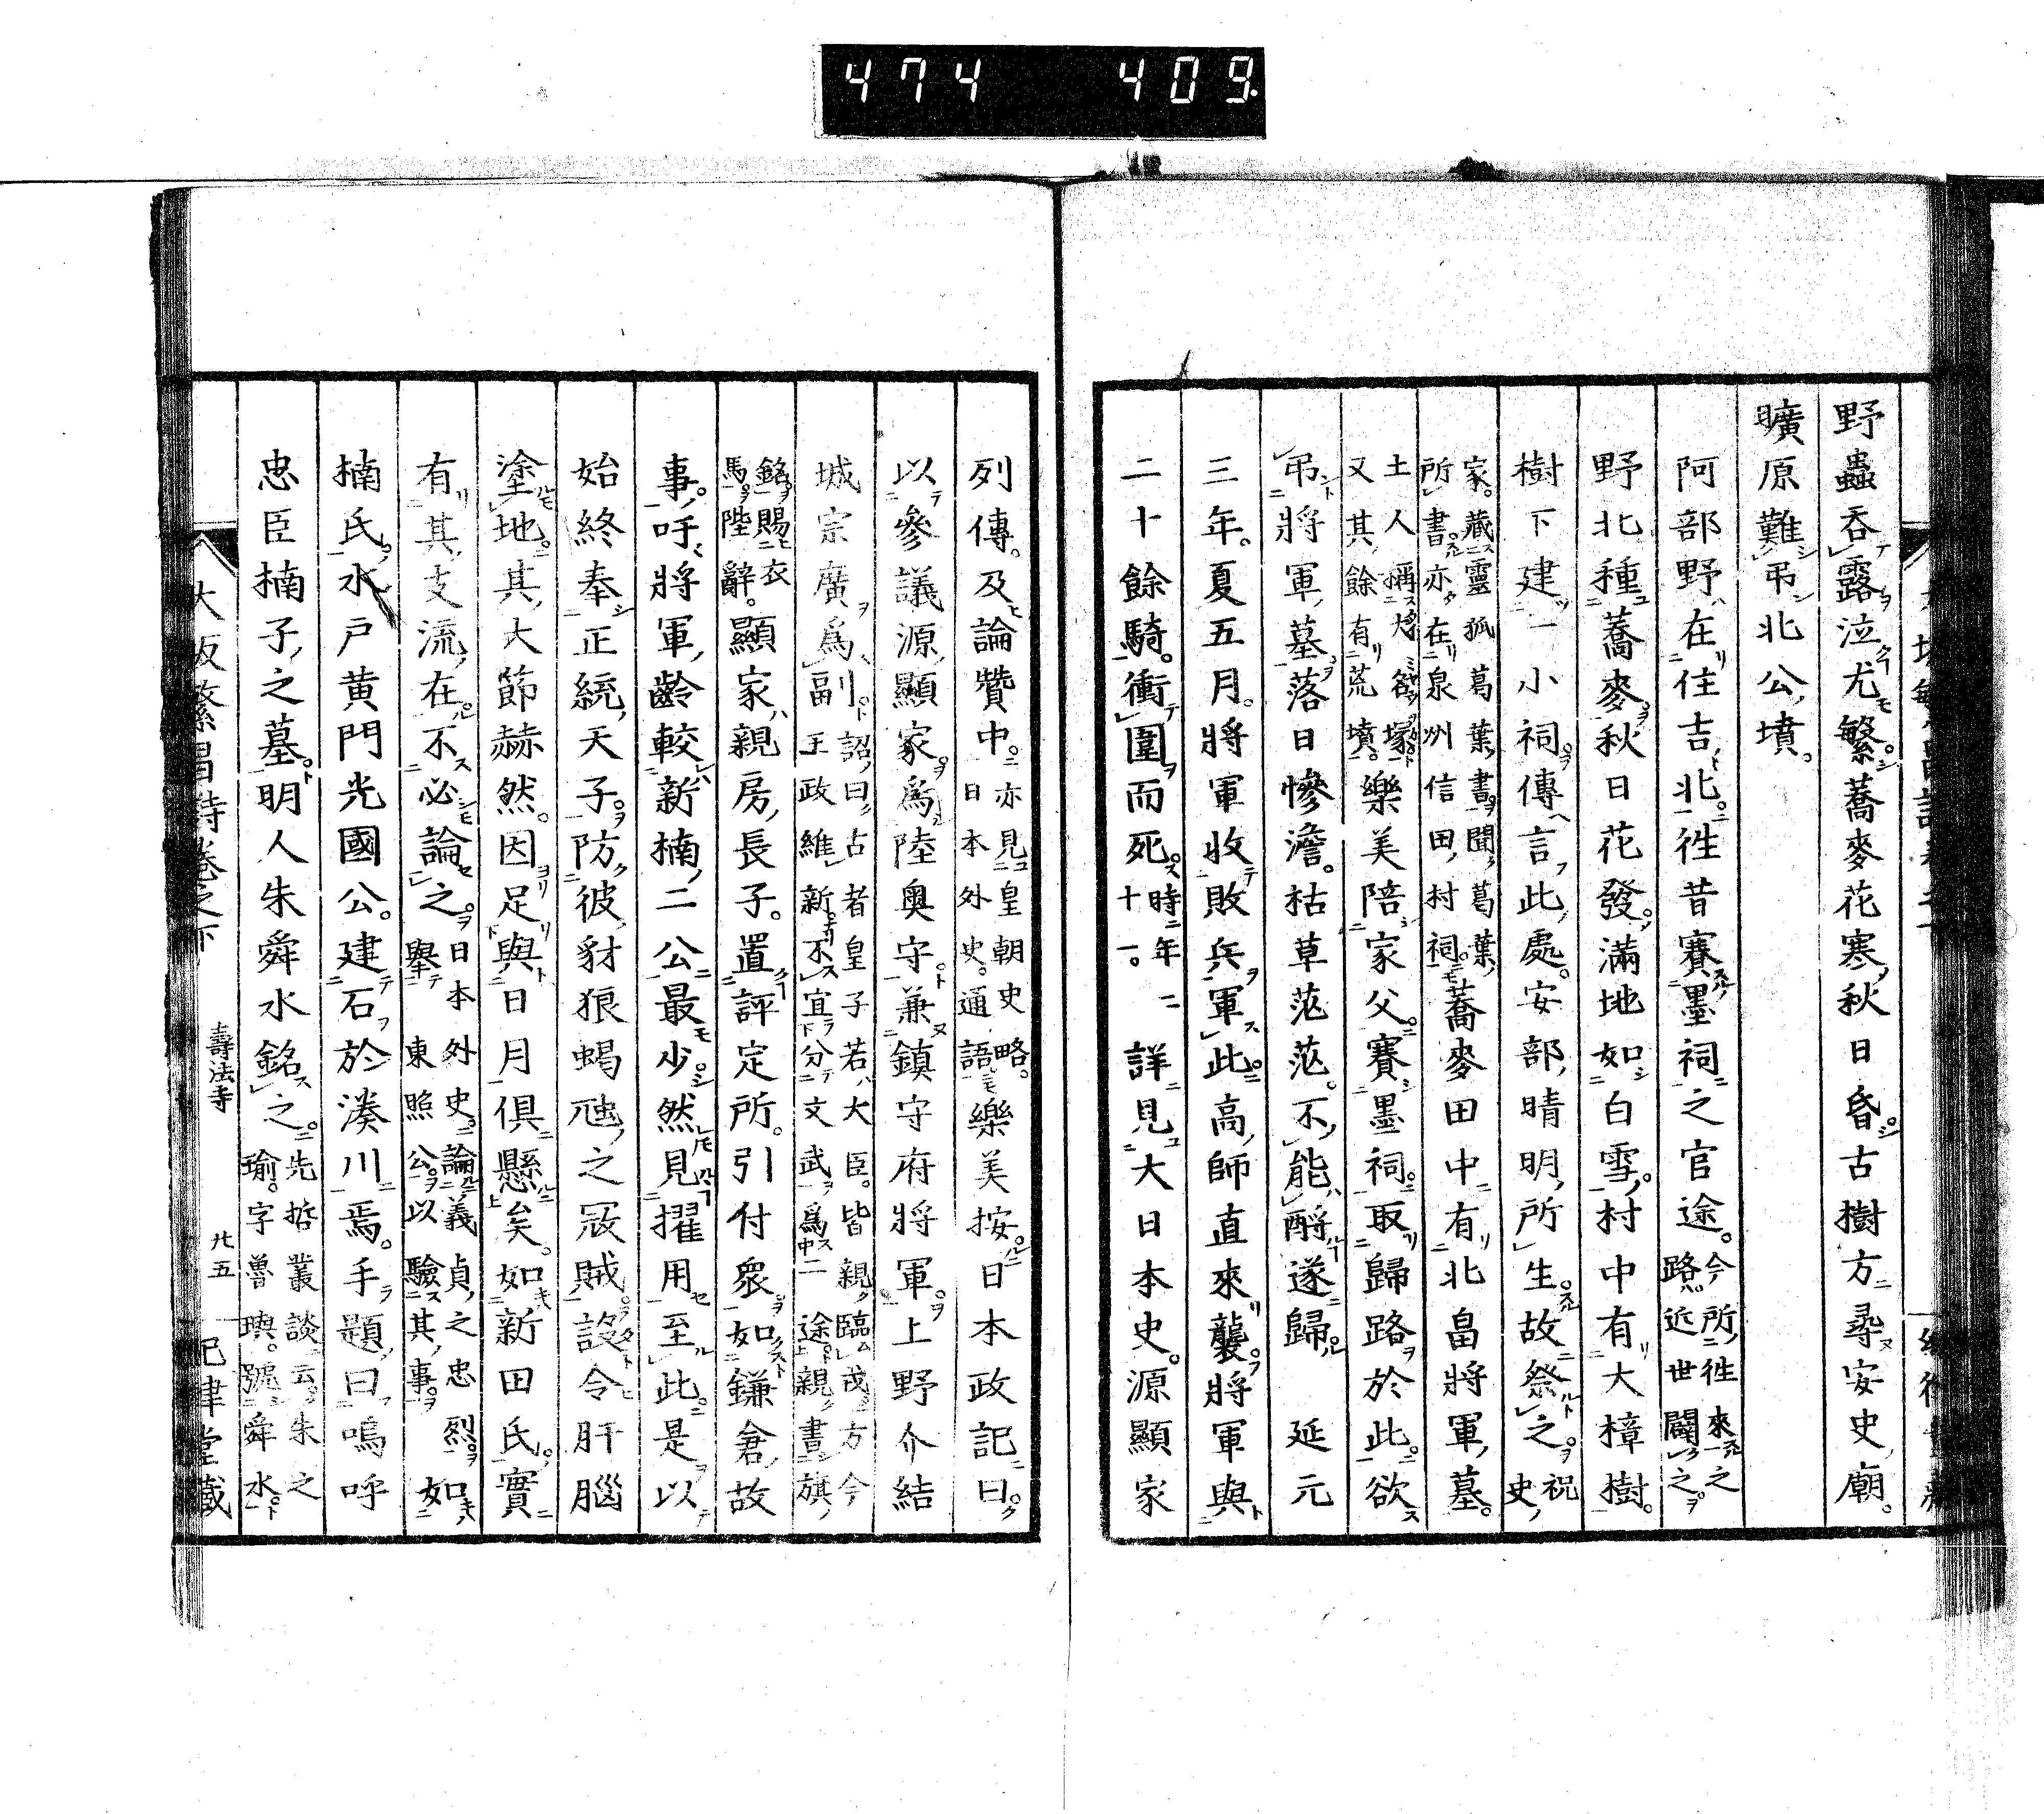 474 409
野蟲吞露泣尤繁蕎麥花寒秋日昏古樹方尋安史廟
曠原難吊北公墳
阿部野在住吉北徃昔賽墨祠之官途今所徃來之路近世闢之
野北種蕎麥秋日花發滿地如白雪村中有大樟樹
樹下建一小祠傳言此處安部晴明所生故祭之祝史
家藏靈狐葛葉書聞葛葉所書亦在泉州信田村祠蕎麥田中有北畠將軍墓
土人稱大名塚又其餘有荒墳樂美陪家父賽墨祠取歸路於此欲
吊將軍墓落日慘澹枯草茫茫不能酹遂歸 延元
三年夏五月將軍收敗兵軍此高師直來襲將軍與
二十餘騎衝圍而死時年二十一 詳見大日本史源顯家
列傳及論贊中亦見皇朝史略日本外史通語樂美按日本政記曰
以參議源顯家爲陸奧守兼鎮守府將軍上野介結
城宗廣爲副詔曰古者皇子若大臣皆親臨戎方今王政維新不宜分文武爲二途親書旗
銘賜衣馬陛辭顯家親房長子置評定所引付衆如鎌倉故
事吁將軍齡較新楠二公最少然見擢用至此是以
始終奉正統天子防彼豺狼蝎虺之冦賊設令肝腦
塗地其大節赫然因足與日月俱懸矣如新田氏實
有其支流在不必論之日本外史論義貞之忠烈擧東照公以驗其事如
楠氏水戶黄門光國公建石於湊川焉手題曰嗚呼
忠臣楠子之墓明人朱舜水銘之先哲叢談云朱之瑜字魯璵號舜水
大阪繁昌詩卷之下 壽法寺 廿五